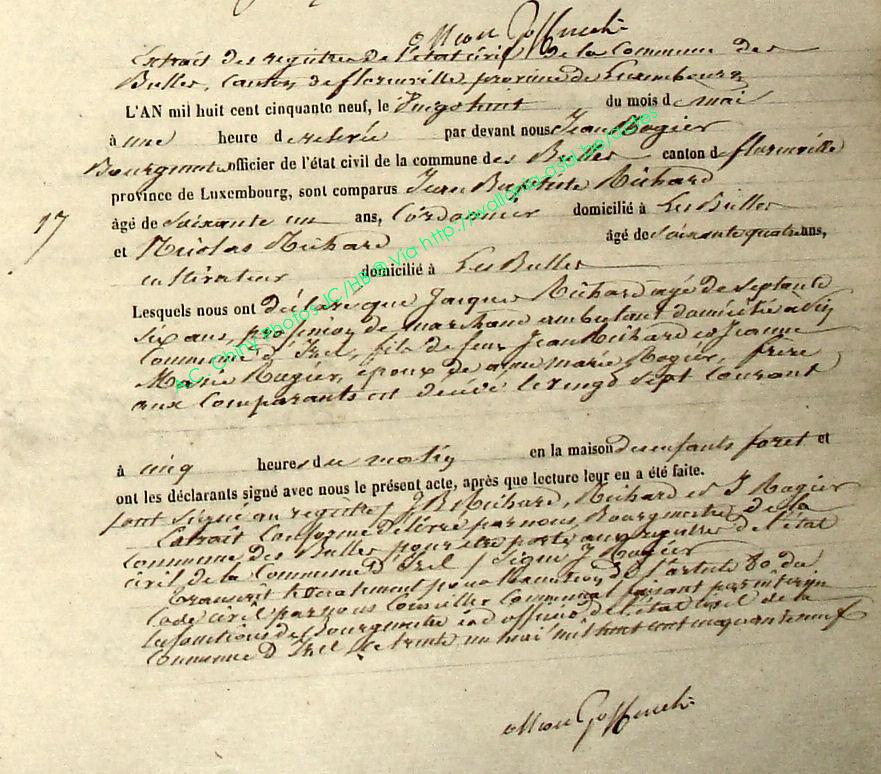 Extrait des registres de l'état civil de la Commune des
Bulles, Canton de florenville province de Luxembourg
L'AN mil huit cent cinquante neuf, le Vingt huit du mois d mai
à une heure d relevée par devant nous Jean Rogier
Bourgmestre officier de l'état civil de la commune des Bulles canton d florenville
province de Luxembourg, sont comparus Jean Baptiste Richard
17
âgé de Soixante un ans, Cordonnier domicilié à Les Bulles
et Nicolas Richard âgé de Soixante quatre ans,
cultivateur domicilié à Les Bulles
Lesquels nous ont déclaré que Jacques Richard agé de septante
six ans, profession de marchand ambulant domicilié à
Commune d'Izel, fils de feus Jean Richard et Jeanne
Marie Rogier, époux de anne marie Rogier, frère
aux Comparants est décédé le vingt sept Courant
à cinq heures du matin en la maison des enfants foret et
ont les déclarants signé avec nous le présent acte, après que lecture leur en a été faite.
sont signé au registre J B Richard, Richard et J Rogier
Extrait Conforme délivré par nous, Bourgmestre de la
Commune des Bulles pour être porté aux registres de l'état
civil de la Commune d'Izel / Signé J Rogier
Transcrit littéralement pour l'exécution de l'article 80 du
Code civil par nous Conseiller Communal faisant par intérim
les fonctions de Bourgmestre et d'officier de l'état civil de la
Commune d'Izel, ce trente un mai mil huit cent cinquante neuf
A.C. Chiny Photos JC/HB © Via http://wallonia-asbl.be/actes